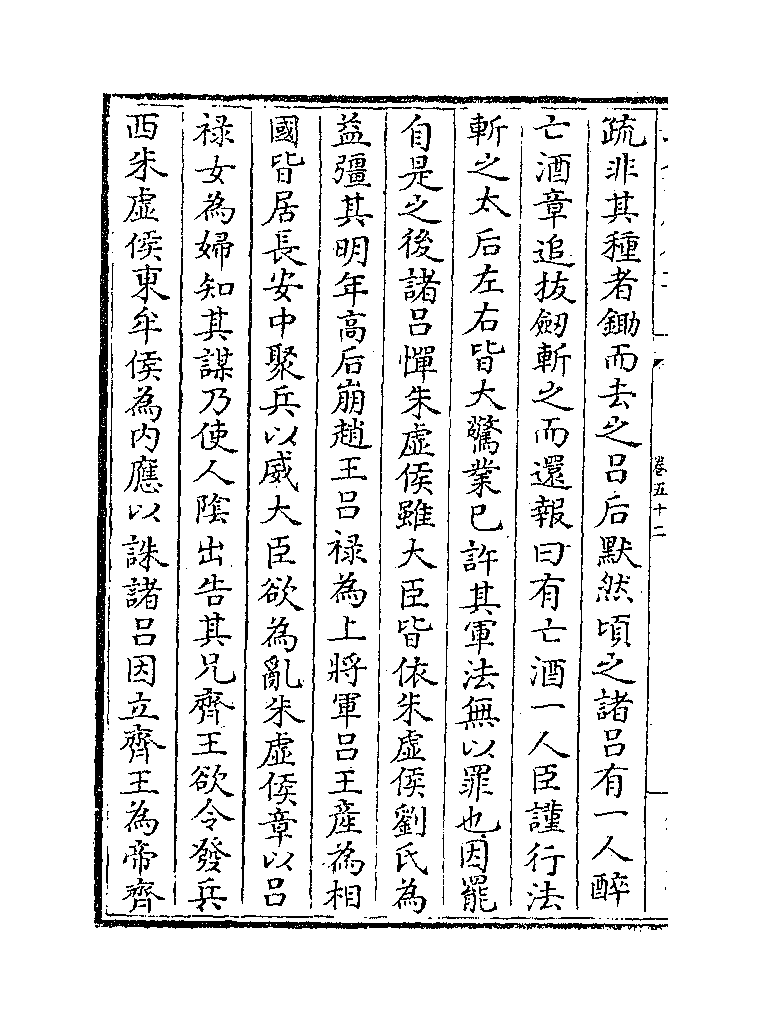 疏非其種者鋤而去之吕后默然頃之諸吕有一人醉
亡酒章追拔劒斬之而還報曰有亡酒一人臣謹行法
斬之太后左右皆大驚業已許其軍法無以罪也因罷
自是之後諸吕憚朱虚侯雖大臣皆依朱虚侯劉氏為
益彊其明年高后崩趙王吕禄為上將軍吕王産為相
國皆居長安中聚兵以威大臣欲為亂朱虚侯章以吕
禄女為婦知其謀乃使人隂出告其兄齊王欲令發兵
西朱虚侯東牟侯為内應以誅諸吕因立齊王為帝齊
卷五十二